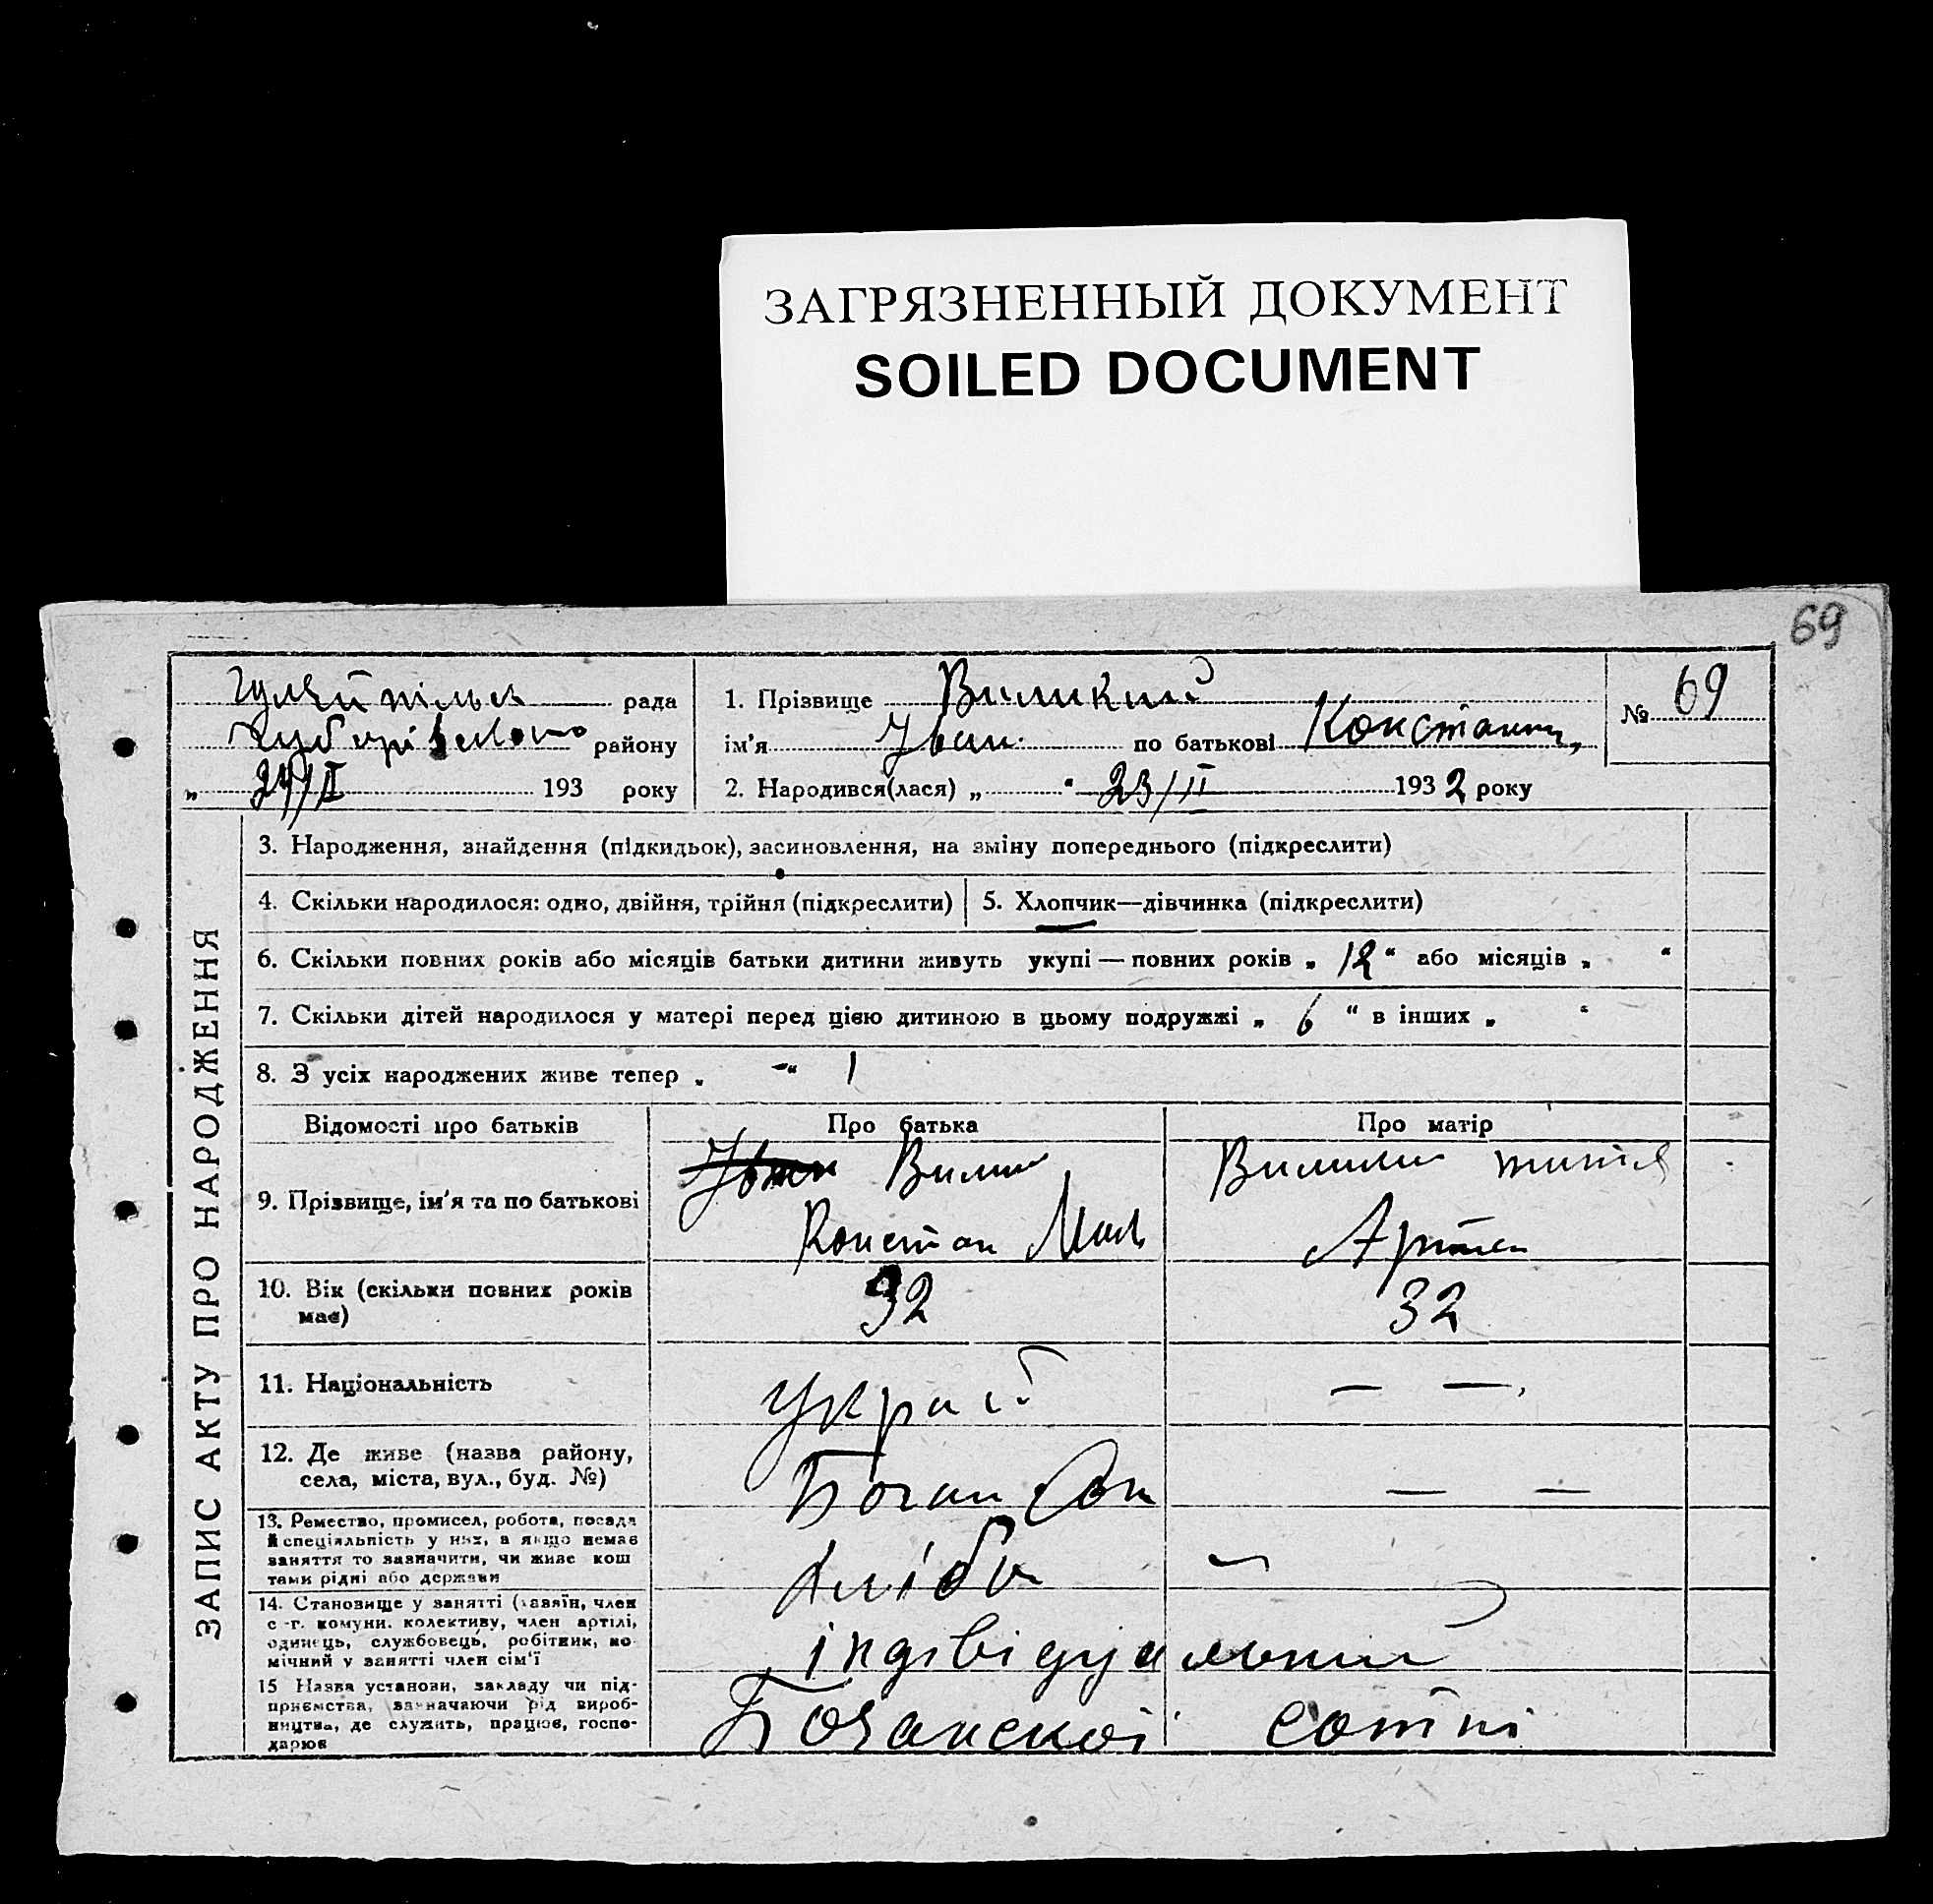 ЗАГРЯЗНЕННЫЙ ДОКУМЕНТ
SOILED DOCUMENT
69
рада
району
„ 24/II 193 року
1. Прізвище Виликий
ім'я Іван по батькові Констант,
2. Народився(лася) „ “ 23/II 1932 року
№ 69
ЗАПИС АКТУ ПРО НАРОДЖЕННЯ
3. Народження, знайдення (підкидьок), засиновлення, на зміну попереднього (підкреслити)
4. Скільки народилося: одно, двійня, трійня (підкреслити) 5. Хлопчик—дівчинка (підкреслити)
6. Скільки повних років або місяців батьки дитини живуть укупі — повних років „ 12 “ або місяців „ “
7. Скільки дітей народилося у матері перед цією дитиною в цьому подружжі „ 6 “ в інших „ “
8. З усіх народжених живе тепер „ “ 1
Відомості про батьків Про батька Про матір
9. Прізвище, ім'я та по батькові
Констан
10. Вік (скільки повних років має) 32 32
11. Національність Украї — —
12. Де живе (назва району, села, міста, вул., буд. №) — —
13. Ремество, промисел, робота, посада
й спеціяльність у них, а якщо немає
заняття то зазначити, чи живе кош
тами рідні або держави
14. Становище у занятті (хазяїн, член
с.-г. комуни. колективу, член артілі,
одинець, службовець, робітник, по
мічний у занятті член сім'ї
індівідуальний
15 Назва установи, закладу чи під-
приємства, зазначаючи рід вироб-
ництва, де служить, працює, госпо-
дарює
сотні